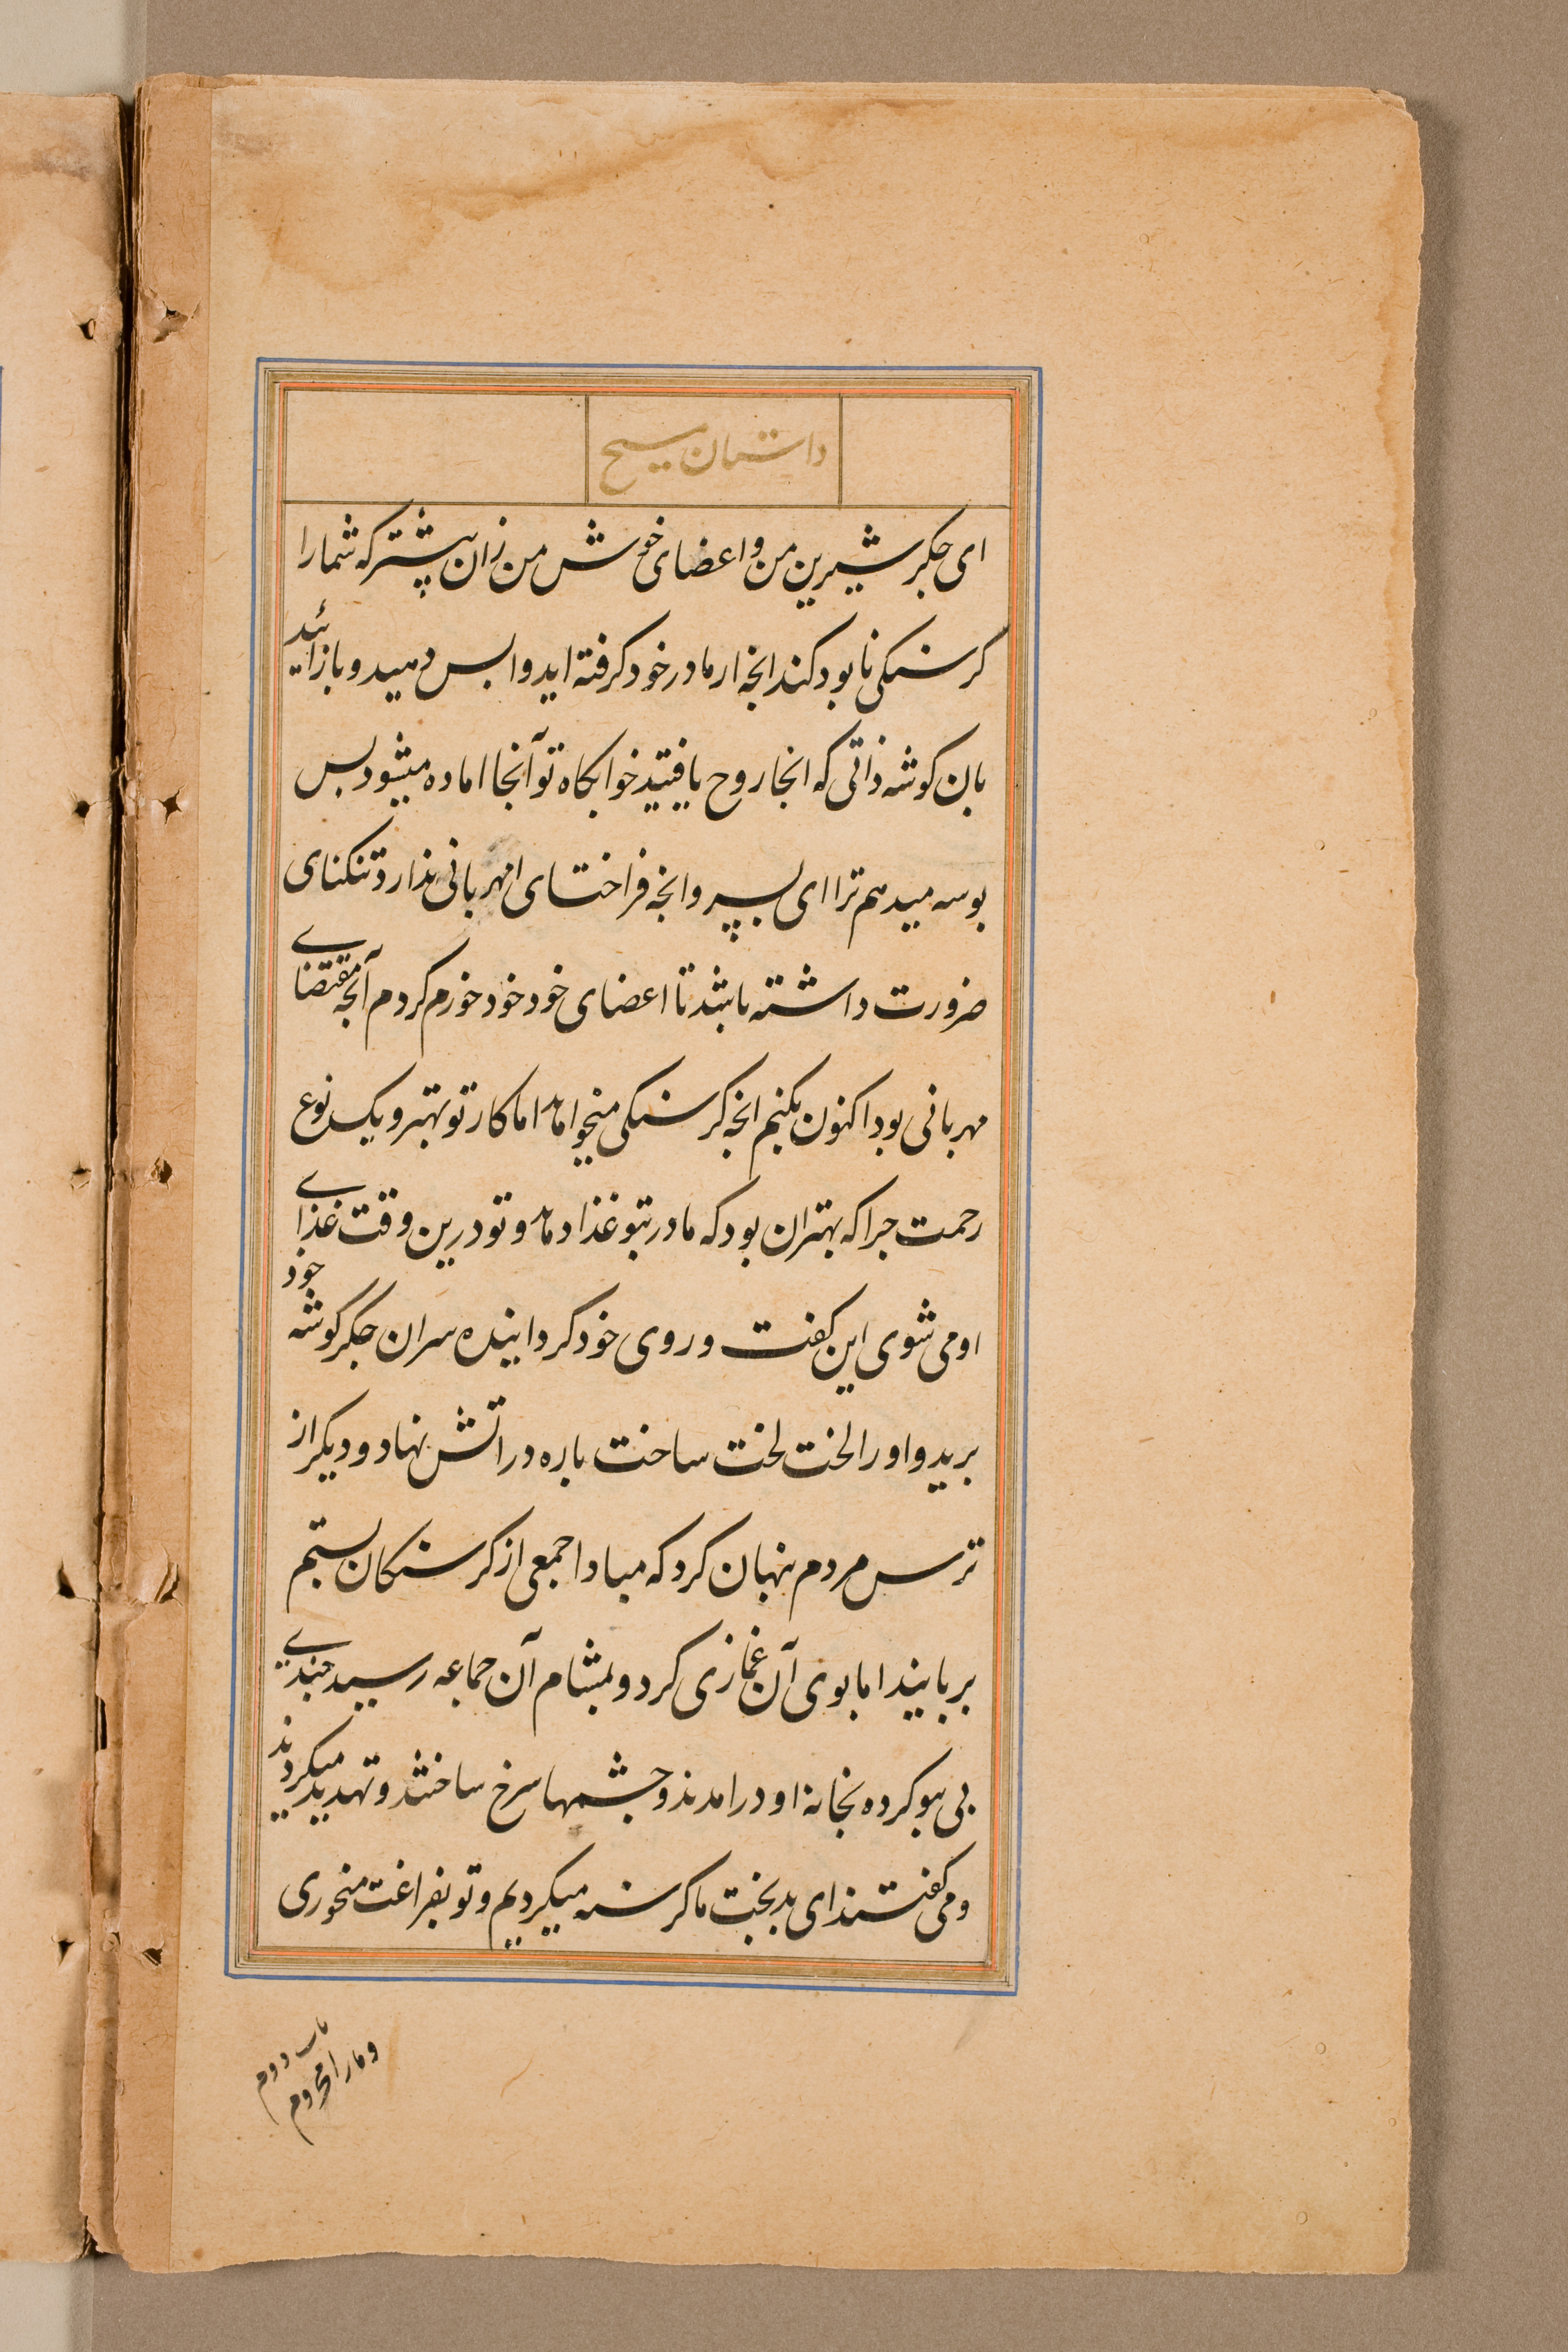 داستان مسیح
ای جکر شیرین من و اعضای خوش من زان پیشتر که شما را
کرسنکی نابود کند انچه از مادر خود کرفته اید وابس دهید و باز ائید
بان کوشه ذاتی که انجا روح یافتید خوابکاه تو آنجا اماده میشود بس
بوسه میدهم ترا ای پسر و انچه فراختای مهربانی ندارد تنکنای
ضرورت داشته باشد تا اعضای خود خود خورم کردم آنچه مقتضای
مهربانی بود اکنون بکنم انچه کرسنکی میخواهد اما کار تو بهتر و یک نوع
رحمت جرا که بهتر ان بود که مادر بتو غذا دهد و تو درین وقت غذای
او می شوی این کفت و روی خود کردانیده سر ان جکر کوشه خود
برید و او را لخت لخت ساخت باره در اتش نهاد و دیکر از
ترس مردم بنهان کرد که مبادا جمعی از کرسنکان بستم
بربایند اما بوی آن غمازی کرد و بمشام آن جماعه رسید جندی
بی ببو کرده بخانهٔ او درامدند و جشمها سرخ ساختند و تهدید میکردند
و می کفتند ای بدبخت ما کرسنه میکردیم و تو بفراغت میخوری
باب دوم
و ما را محروم